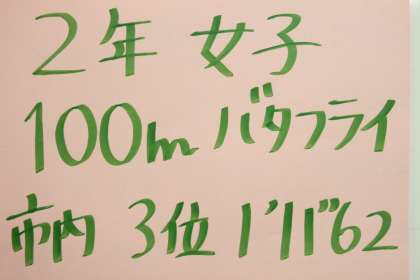 2年 女子
100m バタフライ
市内 3位 1'11"62